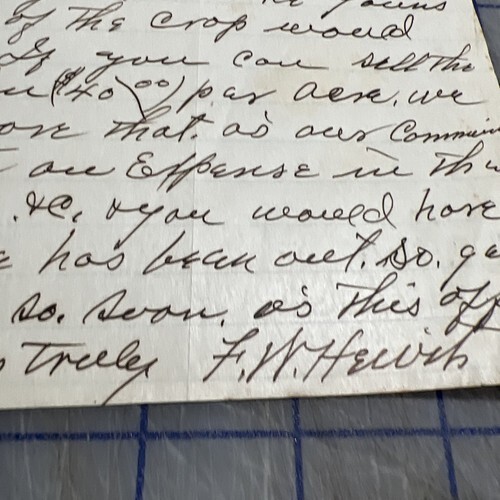 of the crop would
If you can sell the
($40 00) per acre. we
that. as our
an Expense in
&C, & you would have
has been out. So.
so. soon. as this
Truly F. W.